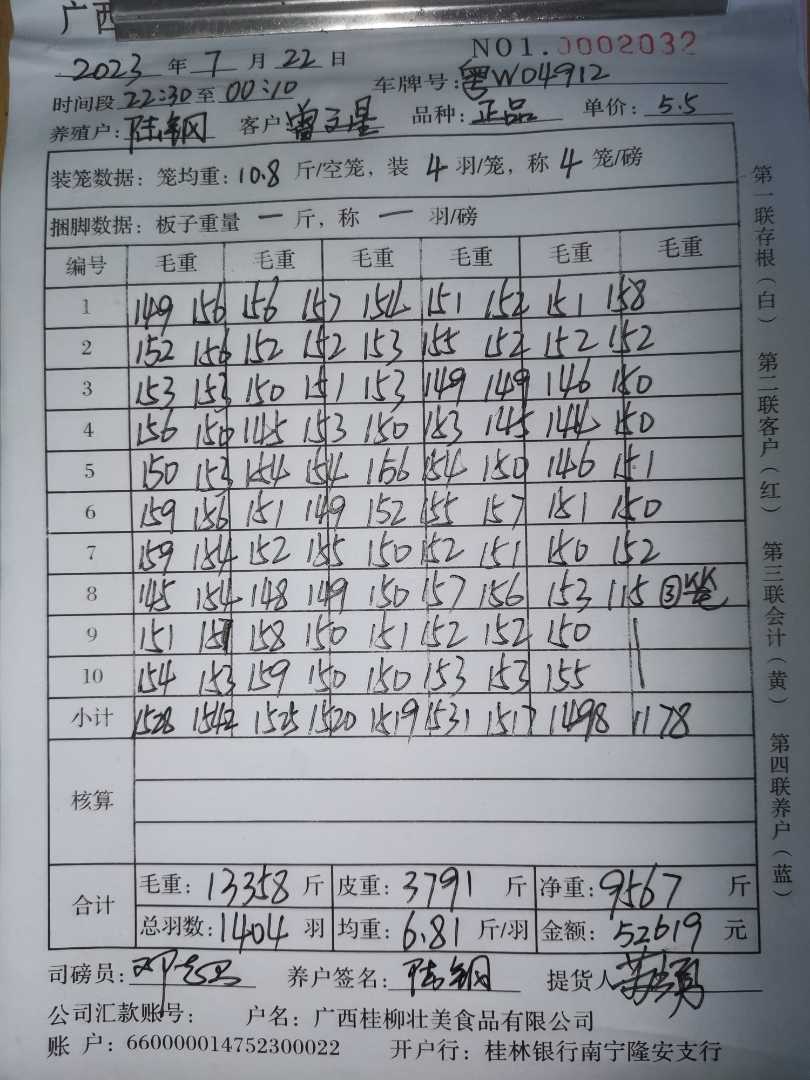 广西
NO1.0002032
2023 年 7 月 22 日
时间段 22:30 至 00:10 车牌号: 粤W04912
养殖户: 陆钢 客户 曾文星 品种: 正品 单价: 5.5
装笼数据: 笼均重: 10.8 斤/空笼, 装 4 羽/笼, 称 4 笼/磅
捆脚数据: 板子重量 一 斤, 称 一 羽/磅
编号 毛重 毛重 毛重 毛重 毛重 毛重
1 149 156 156 157 154 151 152 151 158
2 152 156 152 152 153 155 152 152 152
3 153 153 150 151 153 149 149 146 150
4 156 150 145 153 150 153 145 144 150
5 150 153 154 154 156 154 150 146 151
6 159 156 151 149 152 155 157 151 150
7 159 154 152 155 150 152 151 150 152
8 145 154 148 149 150 157 156 153 115 ③笼
9 151 157 158 150 151 152 152 150
10 154 153 159 150 150 153 153 155
小计 1528 1542 1525 1520 1519 1531 1517 1498 1178
核算
合计 毛重: 13358 斤 皮重: 3791 斤 净重: 9567 斤
总羽数: 1404 羽 均重: 6.81 斤/羽 金额: 52619 元
司磅员: 养户签名: 陆钢 提货人
公司汇款账号: 户名: 广西桂柳壮美食品有限公司
账 户: 660000014752300022 开户行: 桂林银行南宁隆安支行
第一联存根(白) 第二联客户(红) 第三联会计(黄) 第四联养户(蓝)